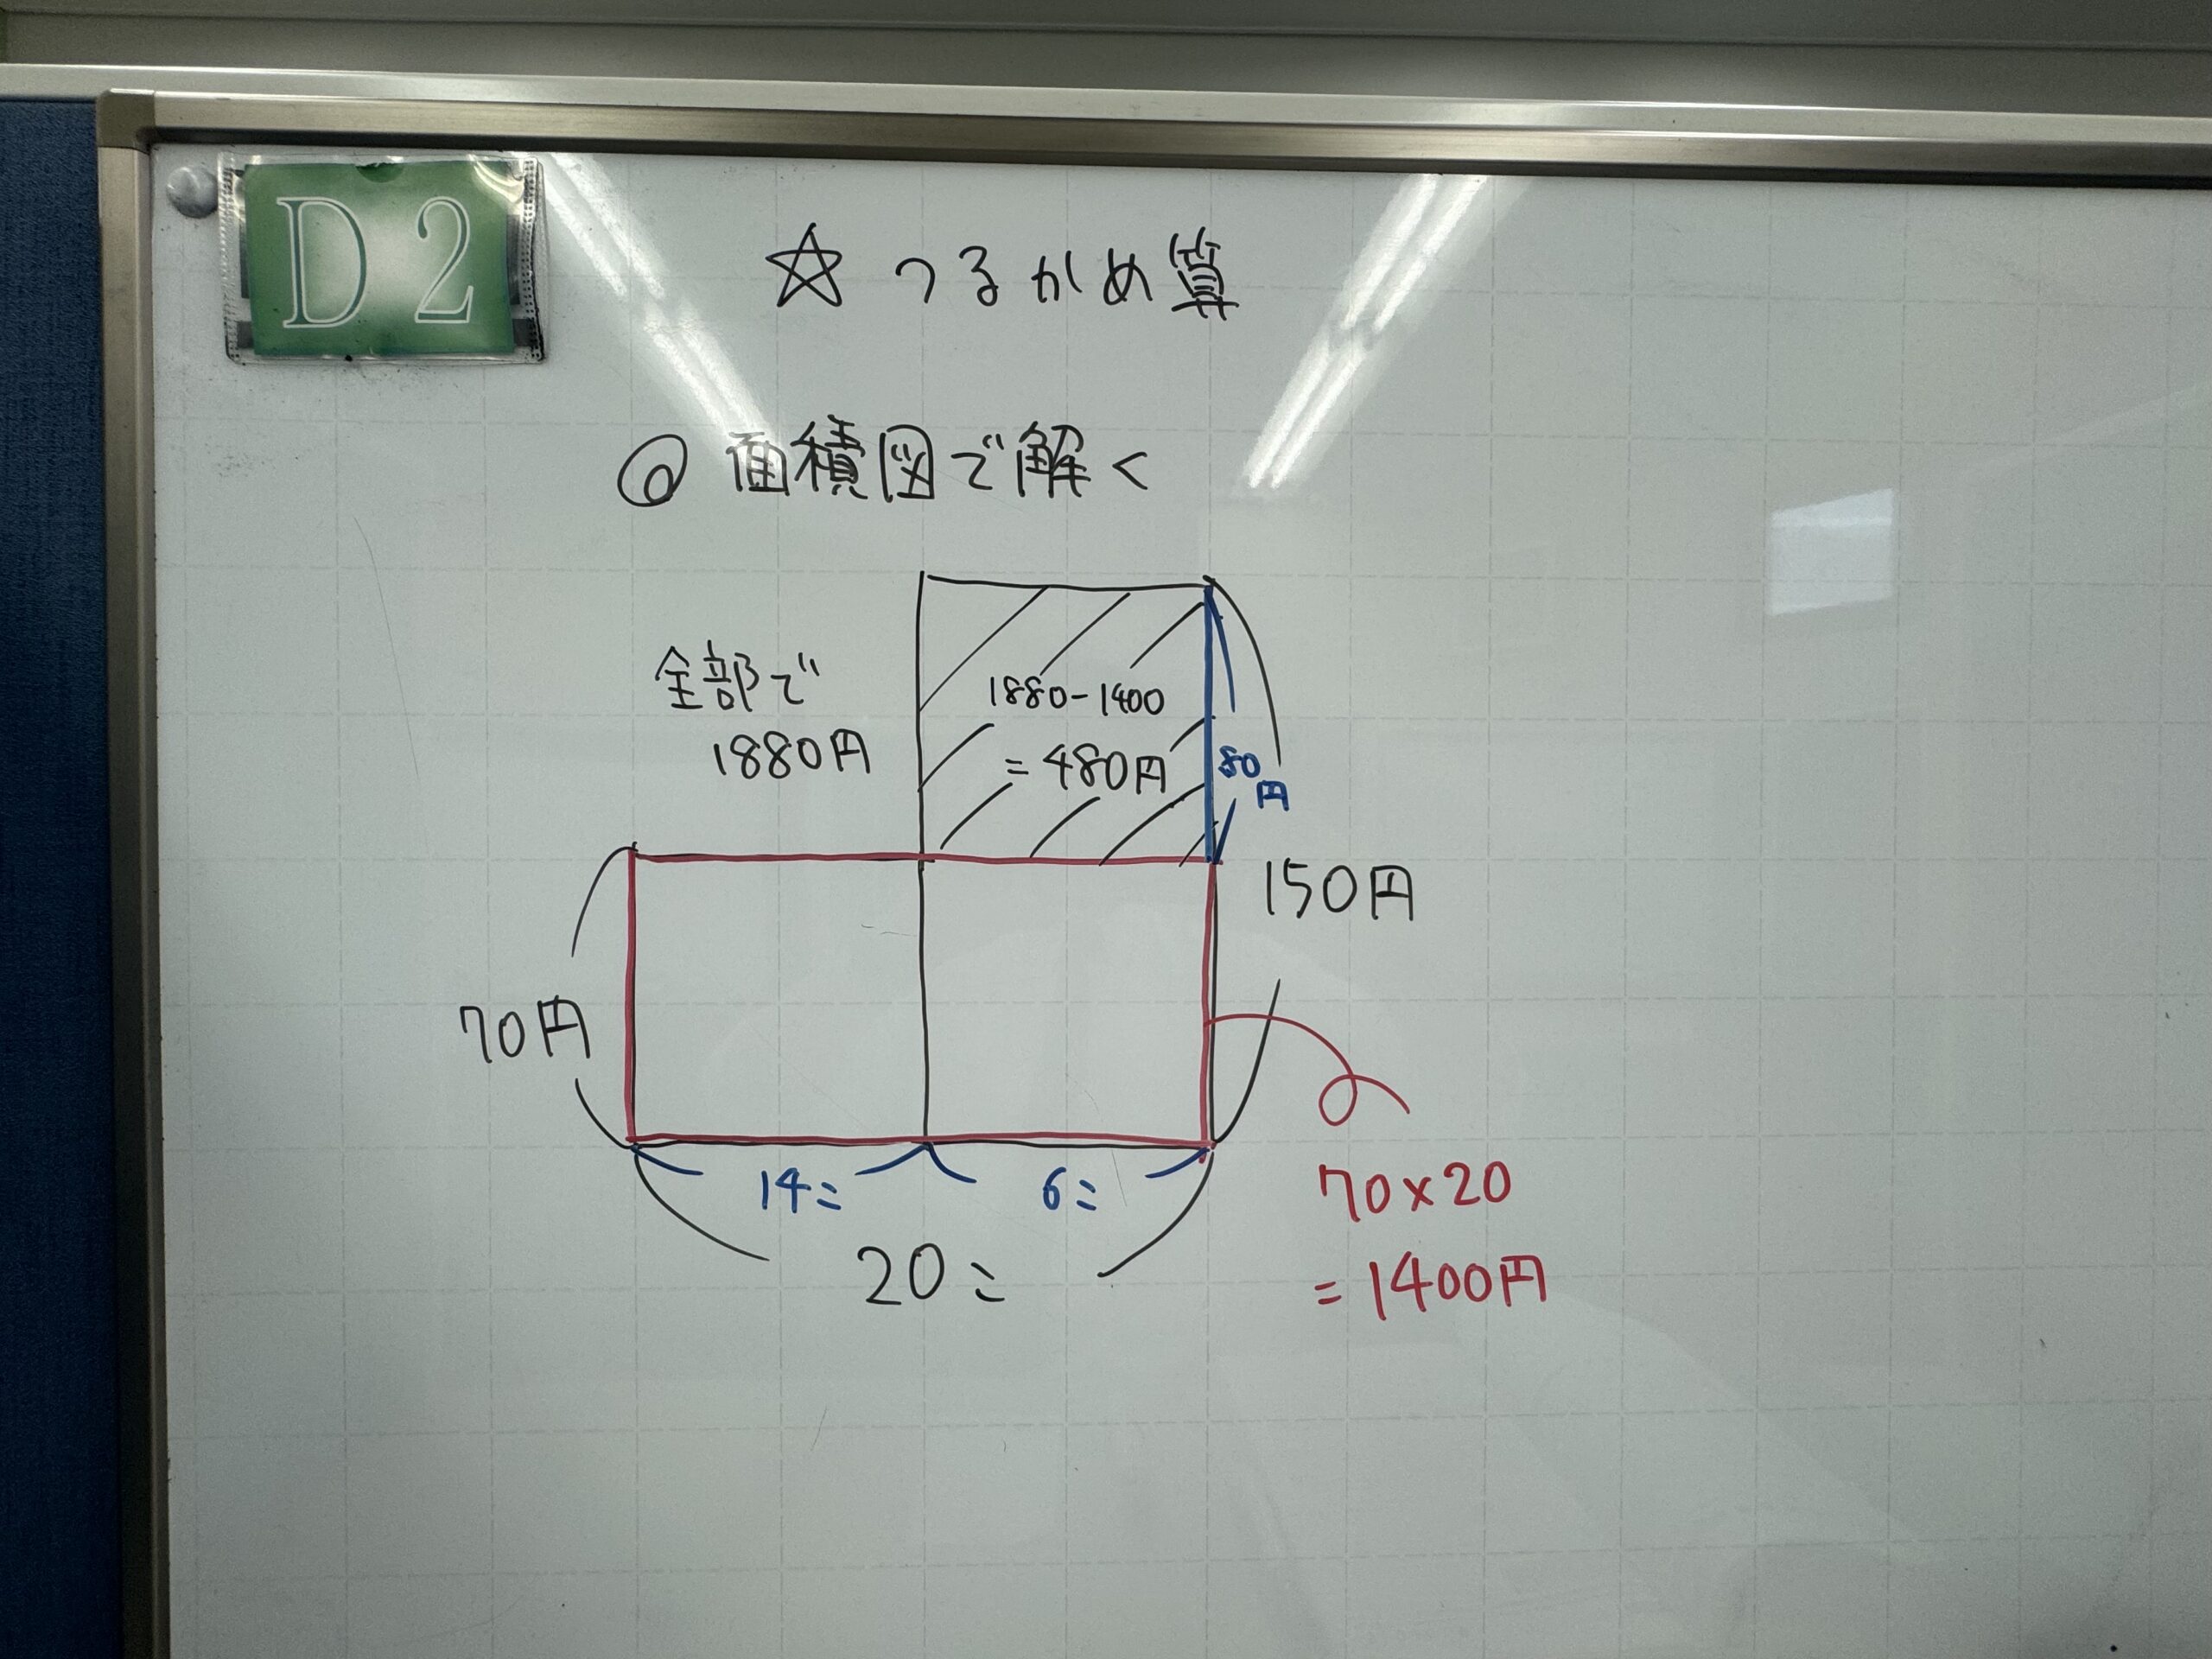 D2
☆ つるかめ算
◎ 面積図で解く
全部で
1880円
1880-1400
= 480円
80
円
150円
70円
14こ
6こ
20こ
70×20
= 1400円